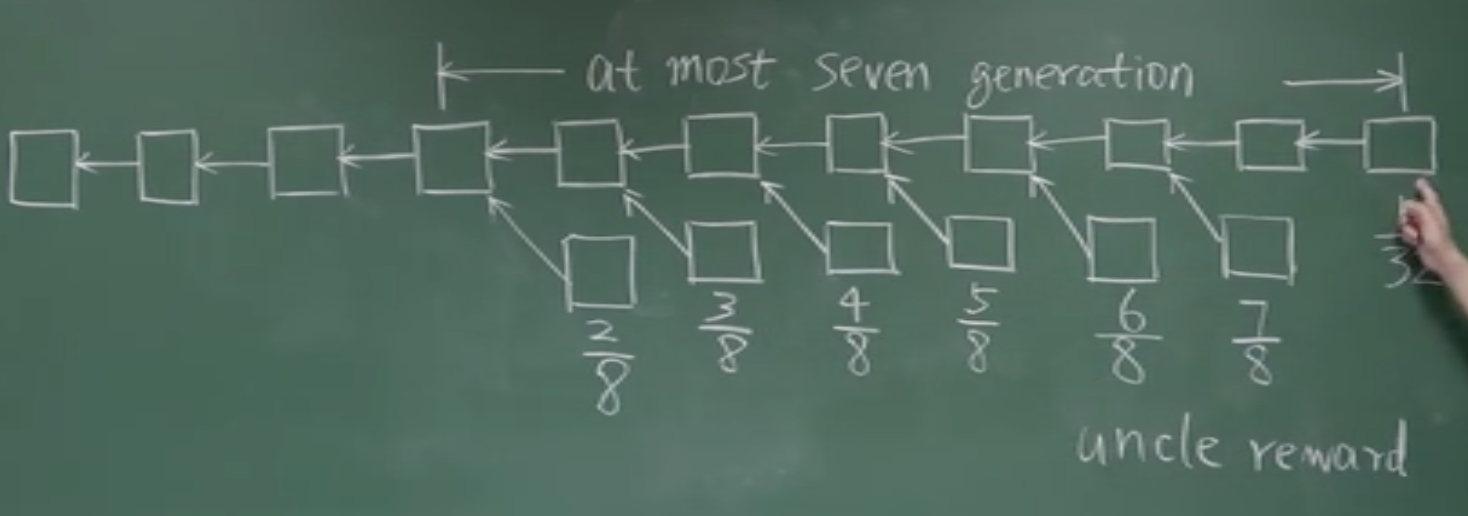 at most seven generation
2/8 3/8 4/8 5/8 6/8 7/8
uncle reward